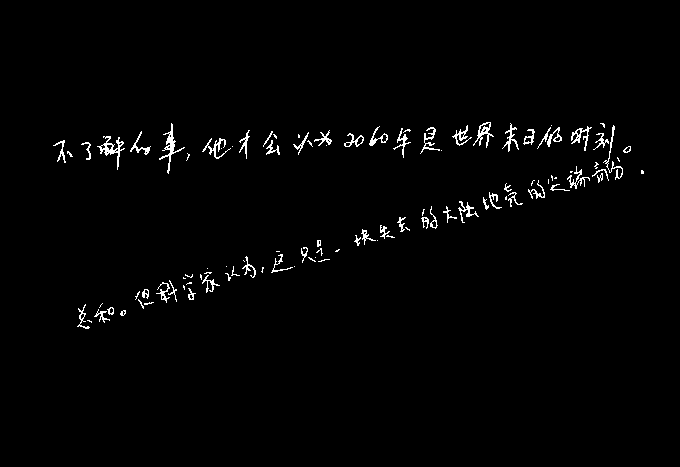 不了解的事,他才会认为2060年是世界末日的时刻。
总和。但科学家认为,这只是一块失去的大陆地壳的尖端部分.